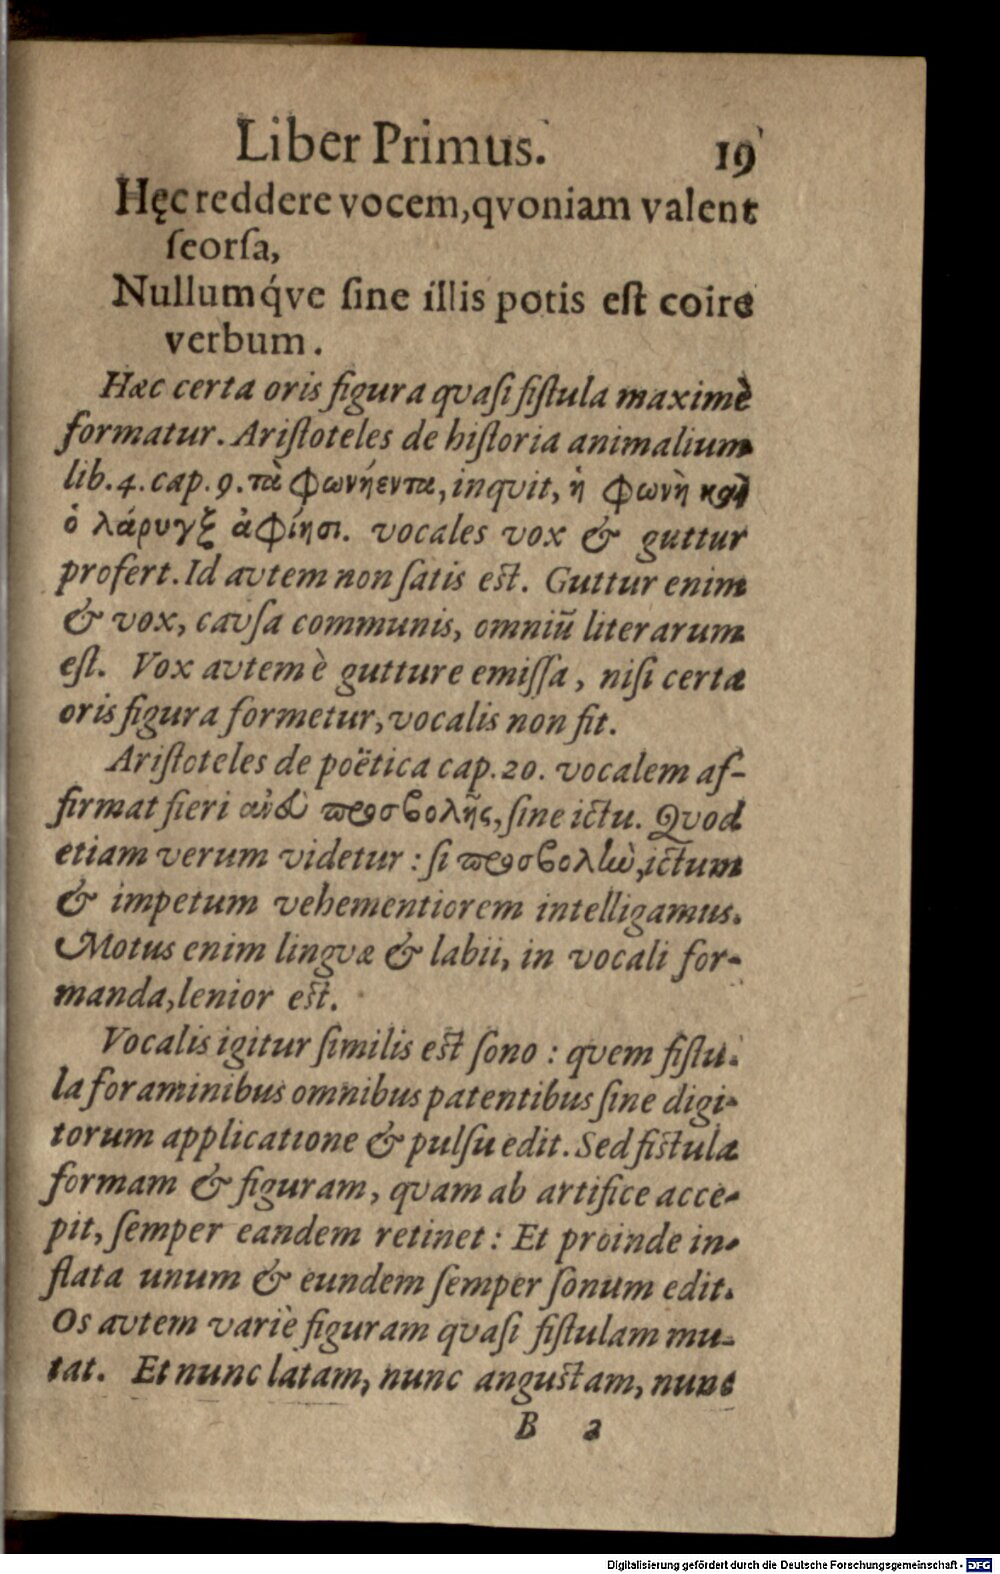 Liber Primus. 19
Hęc reddere vocem, qvoniam valent
ſeorſa,
Nullumq́ve ſine illis potis eſt coire
verbum.
Hæc certa oris figura qvaſi fiſtula maximè
formatur. Ariſtoteles de hiſtoria animalium
lib. 4. cap. 9. τὰ φωνήεντα, inqvit, ἡ φωνὴ καὶ
ὁ λάρυγξ ἀφίησι. vocales vox & guttur
profert. Id avtem non ſatis eſt. Guttur enim
& vox, cavſa communis, omniũ literarum
eſt. Vox avtem è gutture emiſſa, niſi certa
oris figura formetur, vocalis non fit.
Ariſtoteles de poëtica cap. 20. vocalem af-
firmat fieri ἀνευ προσβολῆς, ſine ictu. Qvod
etiam verum videtur: ſi προσβολὴν, ictum
& impetum vehementiorem intelligamus.
Motus enim lingvæ & labii, in vocali for-
manda, lenior eſt.
Vocalis igitur ſimilis eſt ſono: qvem fiſtu-
la foraminibus omnibus patentibus ſine digi-
torum applicatione & pulſu edit. Sed fiſtula
formam & figuram, qvam ab artifice acce-
pit, ſemper eandem retinet: Et proinde in-
flata unum & eundem ſemper ſonum edit.
Os avtem variè figuram qvaſi fiſtulam mu-
tat. Et nunc latam, nunc anguſtam, nunc
B 2
Digitalisierung gefördert durch die Deutsche Forschungsgemeinschaft - DFG